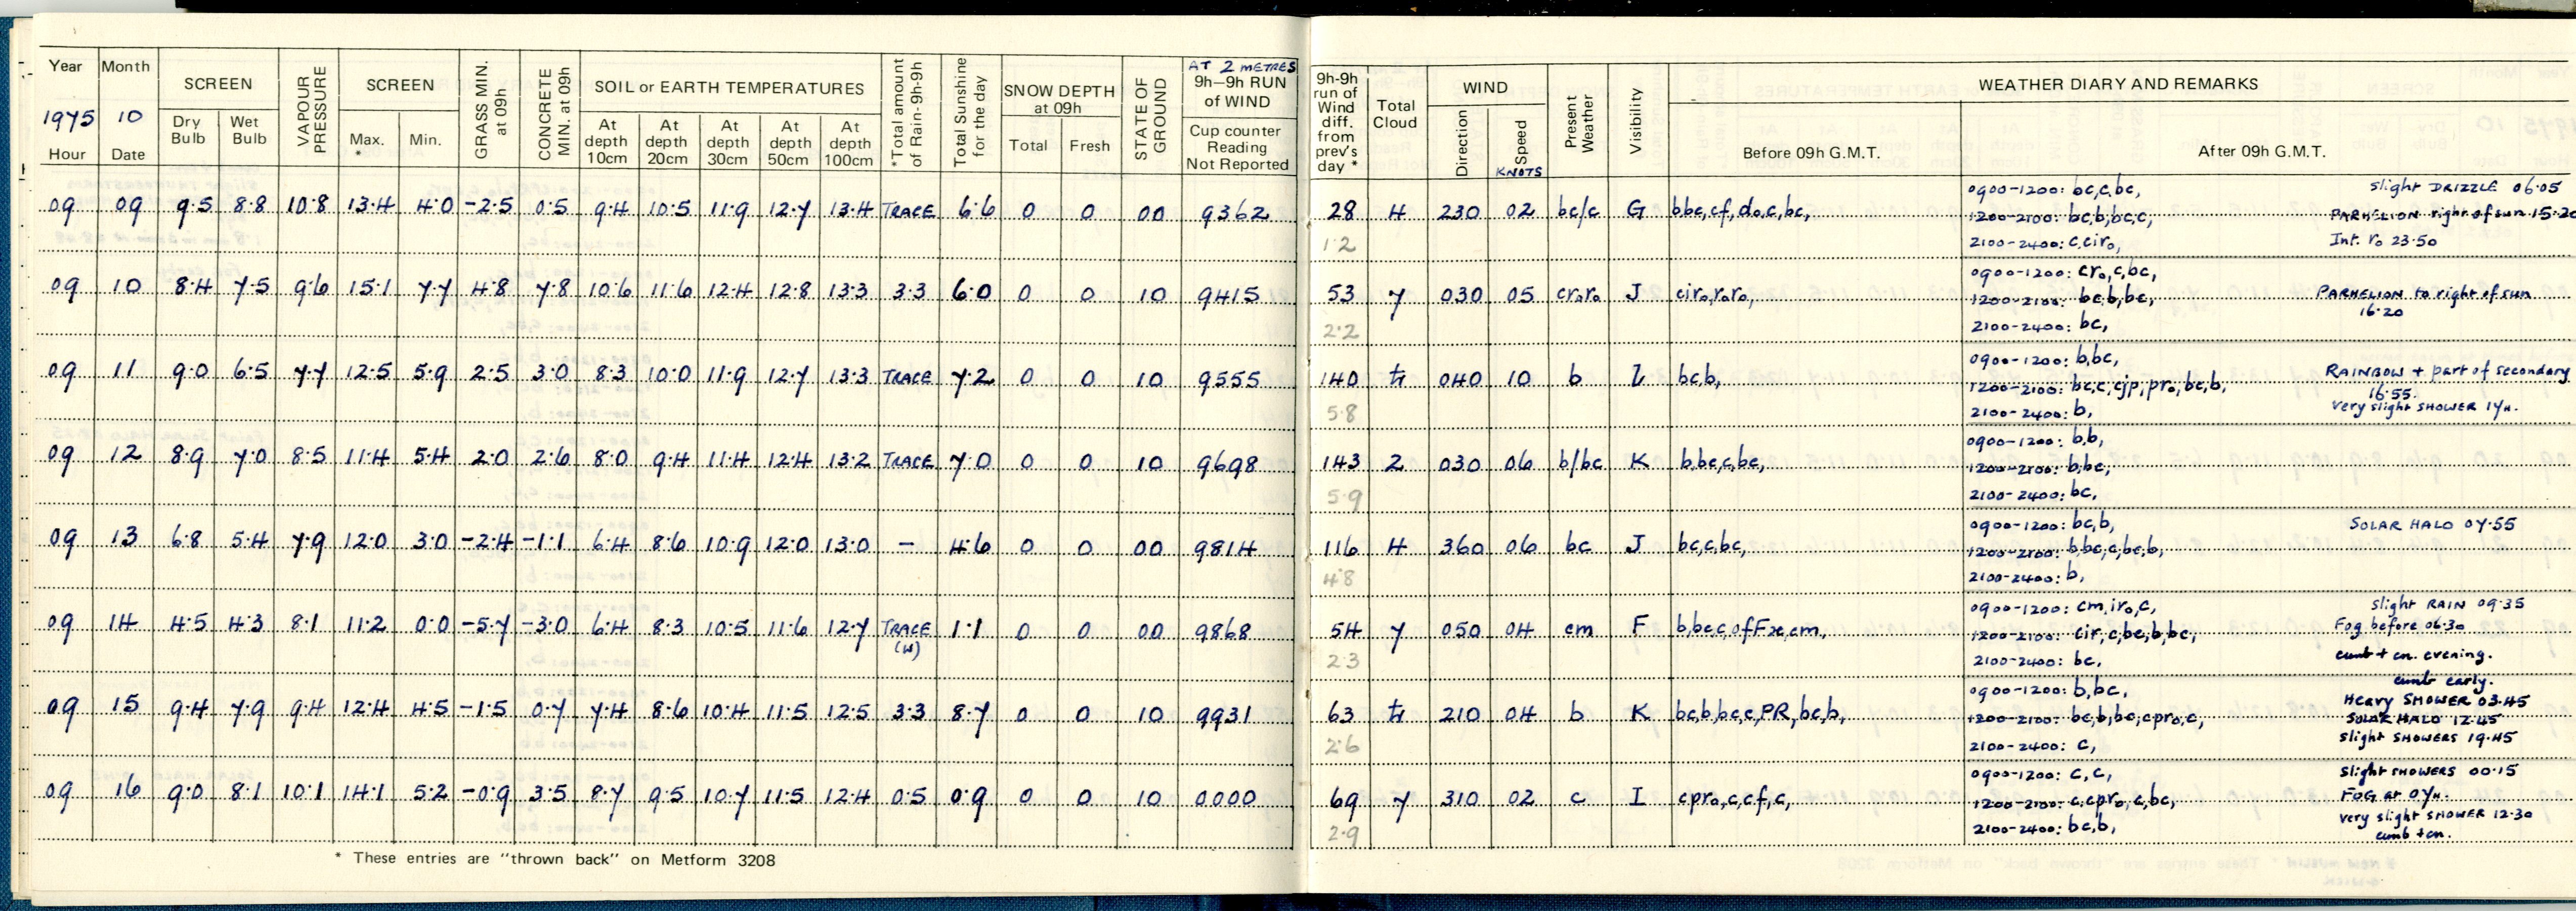 Year Month SCREEN VAPOUR PRESSURE SCREEN GRASS MIN. at 09h CONCRETE MIN. at 09h SOIL or EARTH TEMPERATURES *Total amount of Rain-9h-9h Total Sunshine for the day SNOW DEPTH at 09h STATE OF GROUND AT 2 METRES 9h–9h RUN of WIND
1975 10 Dry Bulb Wet Bulb Max. * Min. At depth 10cm At depth 20cm At depth 30cm At depth 50cm At depth 100cm Total Fresh Cup counter Reading Not Reported
Hour Date
9h-9h run of Wind diff. from prev's day * Total Cloud WIND Present Weather Visibility WEATHER DIARY AND REMARKS
Direction Speed KNOTS Before 09h G.M.T. After 09h G.M.T.
09 09 9.5 8.8 10.8 13.4 4.0 -2.5 0.5 9.4 10.5 11.9 12.7 13.4 TRACE 6.6 0 0 00 9362
28 4 230 02 bc/c G bbc,cf,d₀,c,bc,
1.2
0900-1200: bc,c,bc, slight DRIZZLE 06.05
1200-2100: bc,b,bc,c, PARHELION right of sun 15.20
2100-2400: c,cir₀, Int. r₀ 23.50
09 10 8.4 7.5 9.6 15.1 7.7 4.8 7.8 10.6 11.6 12.4 12.8 13.3 3.3 6.0 0 0 10 9415
53 7 030 05 cr₀r₀ J cir₀,r₀r₀,
2.2
0900-1200: cr₀,c,bc,
1200-2100: bc,b,bc, PARHELION to right of sun
16.20
2100-2400: bc,
09 11 9.0 6.5 7.7 12.5 5.9 2.5 3.0 8.3 10.0 11.9 12.7 13.3 TRACE 7.2 0 0 10 9555
140 tr 040 10 b L bc,b,
5.8
0900-1200: b,bc,
1200-2100: bc,c,cjp,pr₀,bc,b, RAINBOW + part of secondary
16.55.
2100-2400: b, very slight SHOWER 17H.
09 12 8.9 7.0 8.5 11.4 5.4 2.0 2.6 8.0 9.4 11.4 12.4 13.2 TRACE 7.0 0 0 10 9698
143 2 030 06 b/bc K b,bc,c,bc,
5.9
0900-1200: b,b,
1200-2100: b,bc,
2100-2400: bc,
09 13 6.8 5.4 7.9 12.0 3.0 -2.4 -1.1 6.4 8.6 10.9 12.0 13.0 – 4.6 0 0 00 9814
116 4 360 06 bc J bc,c,bc,
4.8
0900-1200: bc,b, SOLAR HALO 07.55
1200-2100: b,bc,c,bc,b,
2100-2400: b,
09 14 4.5 4.3 8.1 11.2 0.0 -5.7 -3.0 6.4 8.3 10.5 11.6 12.7 TRACE (W) 1.1 0 0 00 9868
54 7 050 04 cm F b,bc,c,ofFx,cm,
2.3
0900-1200: cm,ir₀,c, slight RAIN 09.35
1200-2100: cir,c,bc,b,bc, Fog before 06.30
2100-2400: bc, cumb + cn. evening.
09 15 9.4 7.9 9.4 12.4 4.5 -1.5 0.7 7.4 8.6 10.4 11.5 12.5 3.3 8.7 0 0 10 9931
63 tr 210 04 b K bc,b,bc,c,PR,bc,b,
2.6
cumb early.
0900-1200: b,bc, HEAVY SHOWER 03.45
1200-2100: bc,b,bc,cpr₀,c, SOLAR HALO 12.45
2100-2400: c, slight SHOWERS 19.45
09 16 9.0 8.1 10.1 14.1 5.2 -0.9 3.5 8.7 9.5 10.7 11.5 12.4 0.5 0.9 0 0 10 0000
69 7 310 02 c I cpr₀,c,cf,c,
2.9
0900-1200: c,c, slight SHOWERS 00.15
1200-2100: c,cpr₀,c,bc, FOG at 07H.
2100-2400: bc,b, very slight SHOWER 12.30
cumb + cn.
* These entries are "thrown back" on Metform 3208